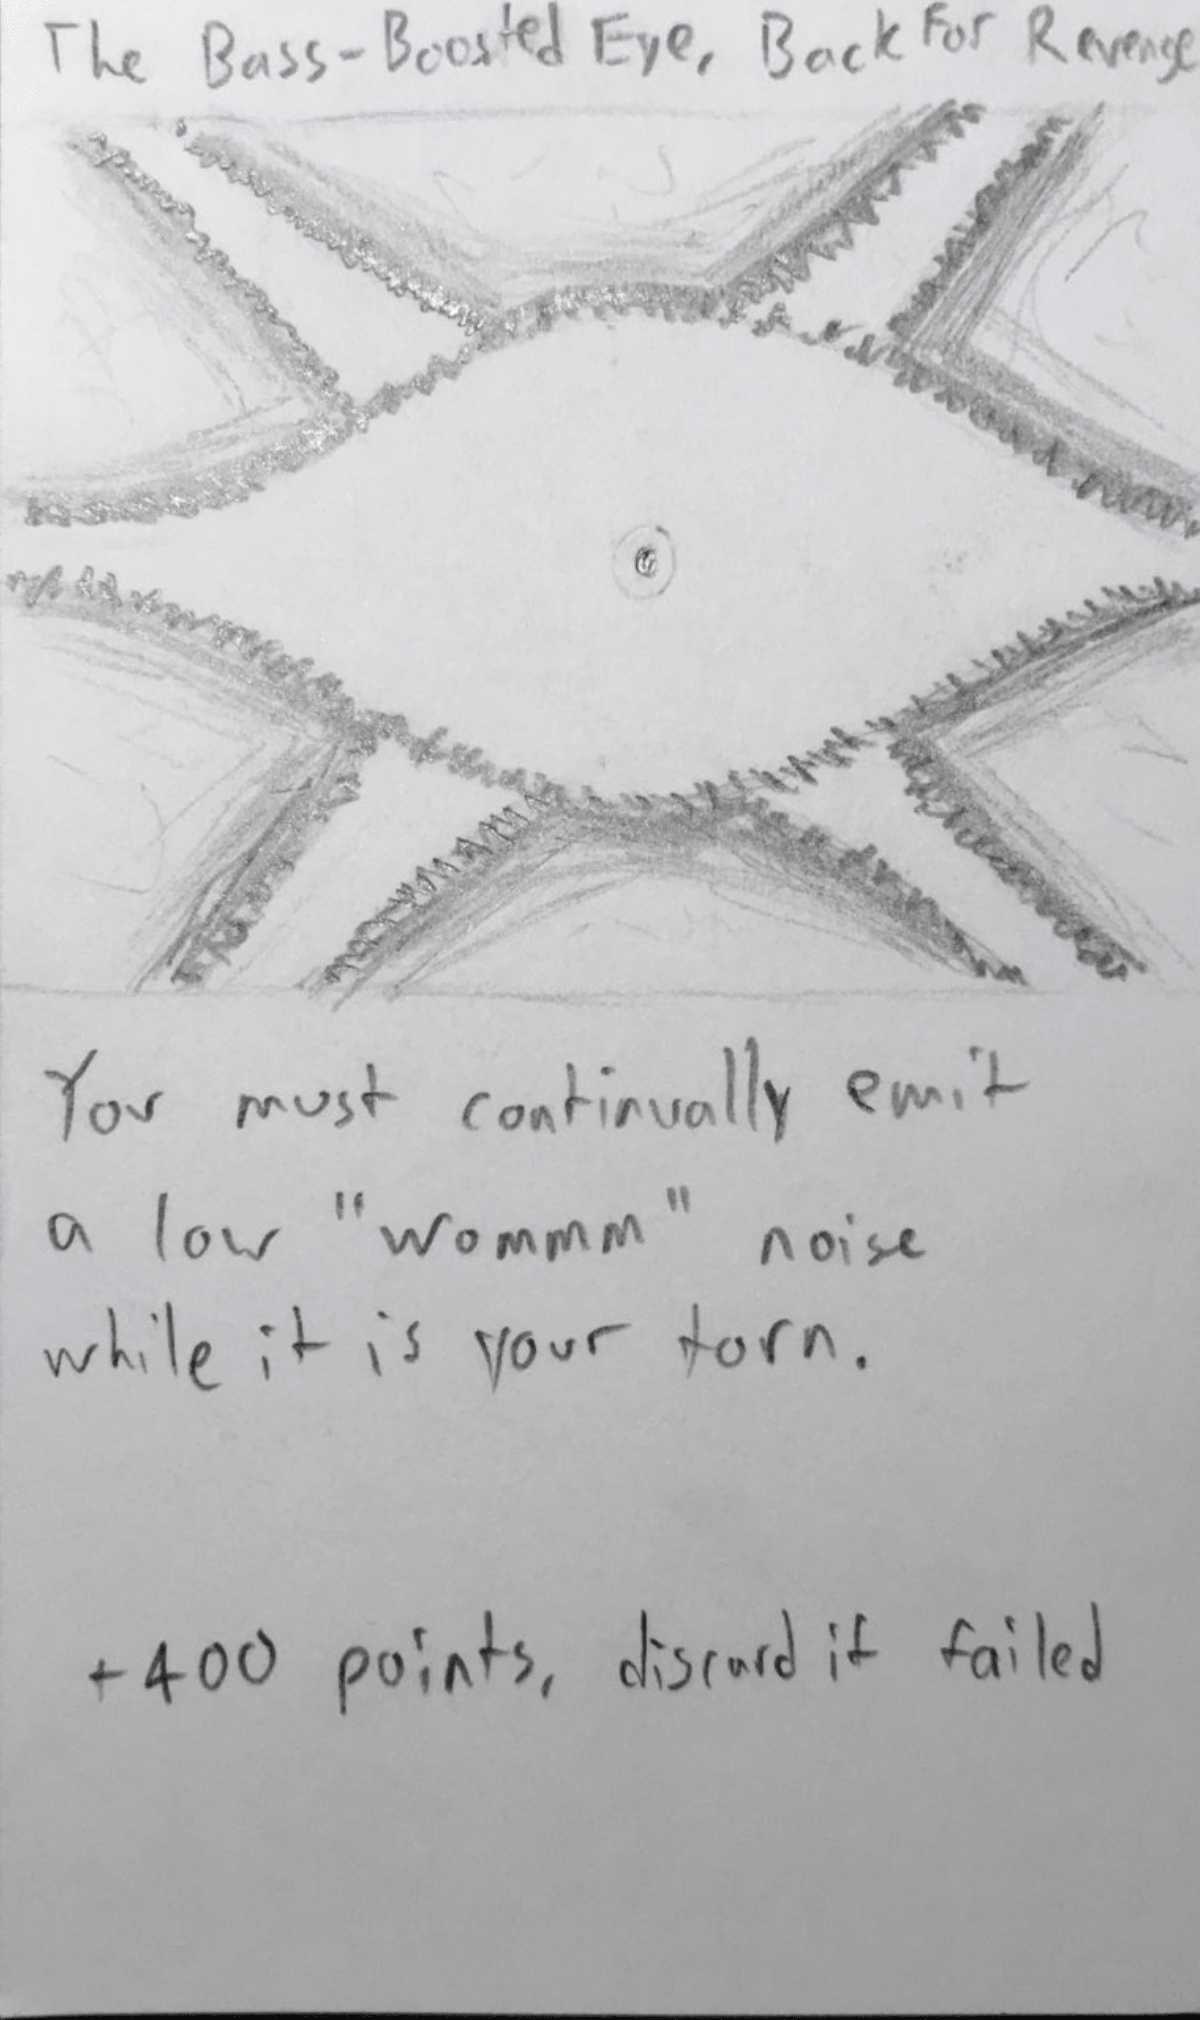 The Bass-Boosted Eye, Back For Revenge
You must continually emit
a low "wommm" noise
while it is your turn.
+400 points, discard if failed